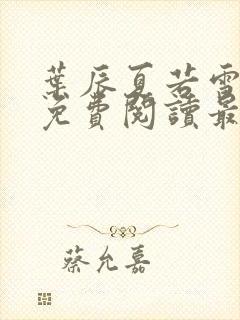 葉辰夏若雪
免費閱讀最
蔡允嘉